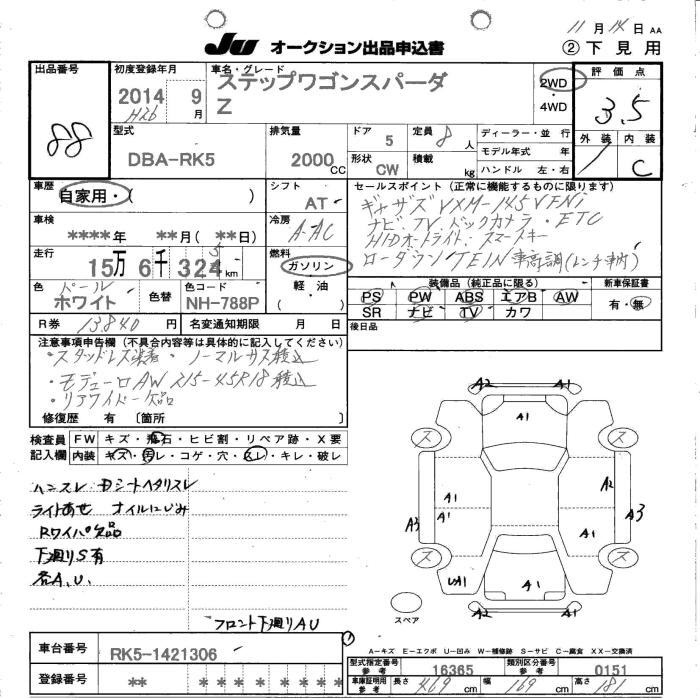 11月14日 AA
JU オークション出品申込書
②下見用
出品番号
88
初度登録年月
2014 9月
H26
車名・グレード
ステップワゴンスパーダ
Z
2WD
・
4WD
評価点
3.5
外装 内装
C
型式
DBA-RK5
排気量
2000CC
ドア
5
定員
8人
形状
CW
積載
kg
ディーラー・並行
モデル年式 年
ハンドル 左・右
車歴
自家用・( )
シフト
AT
セールスポイント(正常に機能するものに限ります)
ギャザズVXM-145VFNi
ナビ・TV バックカメラ・ETC
HIDオートライト・スマートキー
ローダウン TEIN 車高調(レンチ車内)
車検
****年 **月(**日)
冷房
A-AC
走行
15万6千324km
燃料
ガソリン
軽・油
( )
色
パール
ホワイト
色替
色コード
NH-788P
装備品(純正品に限る)
PS PW ABS エアB AW
SR ナビ TV カワ
新車保証書
有・無
R券 13,840円
名変通知期限 月 日
後日品
注意事項申告欄(不具合内容等は具体的に記入してください)
・スタッドレス装着・ノーマルサス積込
・モデューロAW 215-45R18積込
・リアワイパー欠品
修復歴 有 [箇所 ]
検査員
記入欄
FW キズ・飛石・ヒビ割・リペア跡・X要
内装 キズ・汚レ・コゲ・穴・スレ・キレ・破レ
ハンスレ Dシートヘタリスレ
ライトあせ オイルにじみ
Rワイパ欠品
下廻りS有
各A.U.
フロント下廻りAU
A2 A1
A1
ス ス
A1
A1
A3
A2
A3
A1
ス ス
UA1
A1
A2 A1
スペア
A-キズ E-エクボ U-凹み W-補修跡 S-サビ C-腐食 XX-交換済
車台番号
RK5-1421306
登録番号
** * * * * * * * * *
型式指定番号
参考
16365
類別区分番号
参考
0151
車庫証明用
参考
長さ 469cm
幅 169cm
高さ 181cm